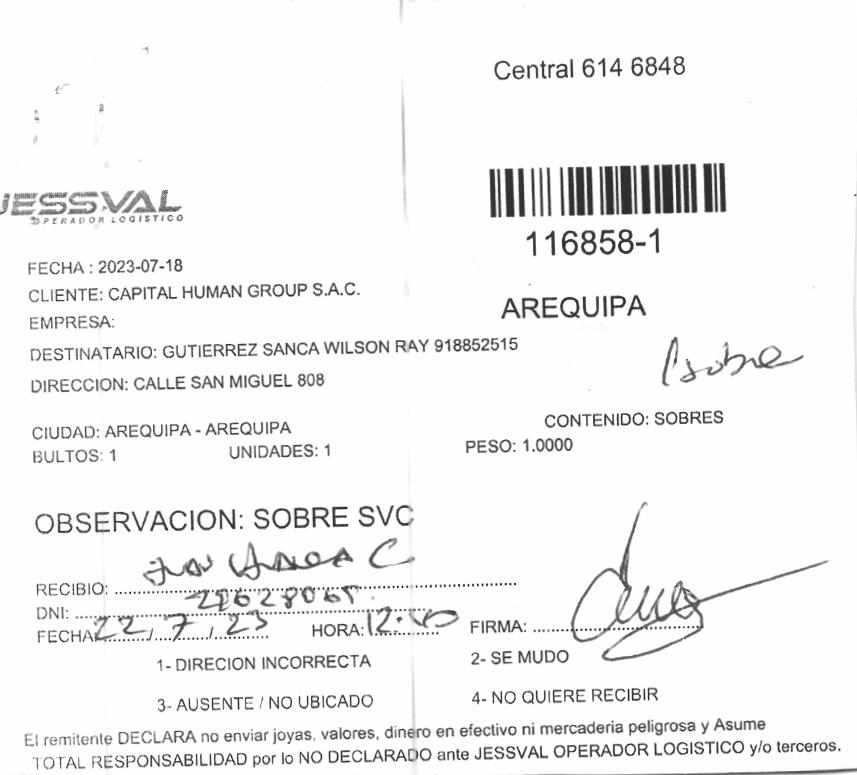 Central 614 6848
JESSVAL
OPERADOR LOGÍSTICO
116858-1
FECHA : 2023-07-18
CLIENTE: CAPITAL HUMAN GROUP S.A.C.
AREQUIPA
EMPRESA:
DESTINATARIO: GUTIERREZ SANCA WILSON RAY 918852515
1 sobre
DIRECCION: CALLE SAN MIGUEL 808
CIUDAD: AREQUIPA - AREQUIPA
CONTENIDO: SOBRES
BULTOS: 1 UNIDADES: 1 PESO: 1.0000
OBSERVACION: SOBRE SVC
RECIBIO:
DNI:
FECHA 22/7/23 HORA: 12:40 FIRMA:
1- DIRECION INCORRECTA 2- SE MUDO
3- AUSENTE / NO UBICADO 4- NO QUIERE RECIBIR
El remitente DECLARA no enviar joyas, valores, dinero en efectivo ni mercaderia peligrosa y Asume
TOTAL RESPONSABILIDAD por lo NO DECLARADO ante JESSVAL OPERADOR LOGISTICO y/o terceros.